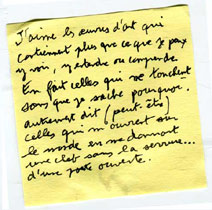 J'aime les œuvres d'art qui
contiennent plus que ce que je peux
y voir, y entendre ou comprendre.
En fait celles qui me touchent
sans que je sache pourquoi.
autrement dit (peut-être)
celles qui m'ouvrent sur
le monde en me donnant
une clef sans la serrure...
d'une porte ouverte.